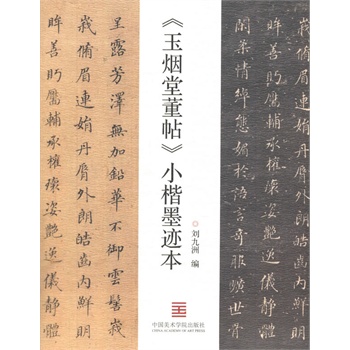 峩脩眉連娟丹脣外朗皓齒內鮮明
眸善眄靨輔承權瓌姿艷逸儀靜體
閑柔情綽態媚於語言奇服曠世
《玉烟堂董帖》小楷墨迹本
刘九洲 编
中国美术学院出版社
CHINA ACADEMY OF ART PRESS
呈露芳澤無加鉛華不御雲髻峩
峩脩眉連娟丹脣外朗皓齒內鮮明
眸善眄靨輔承權瓌姿艷逸儀靜體